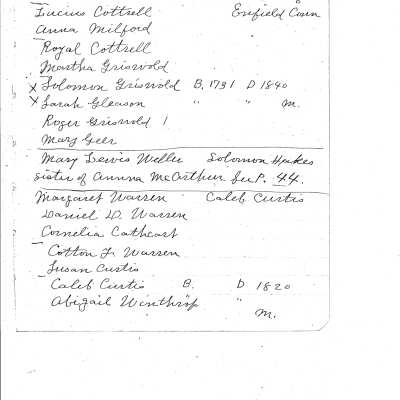 Lucius Cottrell Enfield Conn
Anna Milford
Royal Cottrell
Martha Griswold
x Solomon Griswold B. 1731 D 1840
x Sarah Gleason " " M.
Roger Griswold 1
Mary Geer
Mary Lewis Weller Solomon Hakes
sister of Annna McArthur See P. 44.
Margaret Warren Caleb Curtis
Daniel D. Warren
Cornelia Cathcart
Cotton F. Warren
Susan Curtis
Caleb Curtis B. D 1820
Abigail Winthrop "
M.